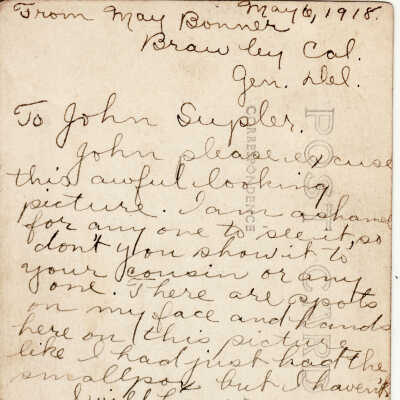 May 6, 1918.
From May Bonner
Brawley Cal.
Gen. Del.
To John Supler.
John please excuse
this awful looking
picture. I am ashamed
for any one to see it, so
don't you show it to
your cousin or any
one. There are spots
on my face and hands
here on this picture
like I had just had the
smallpox but I haven't
POST CARD
CORRESPONDENCE